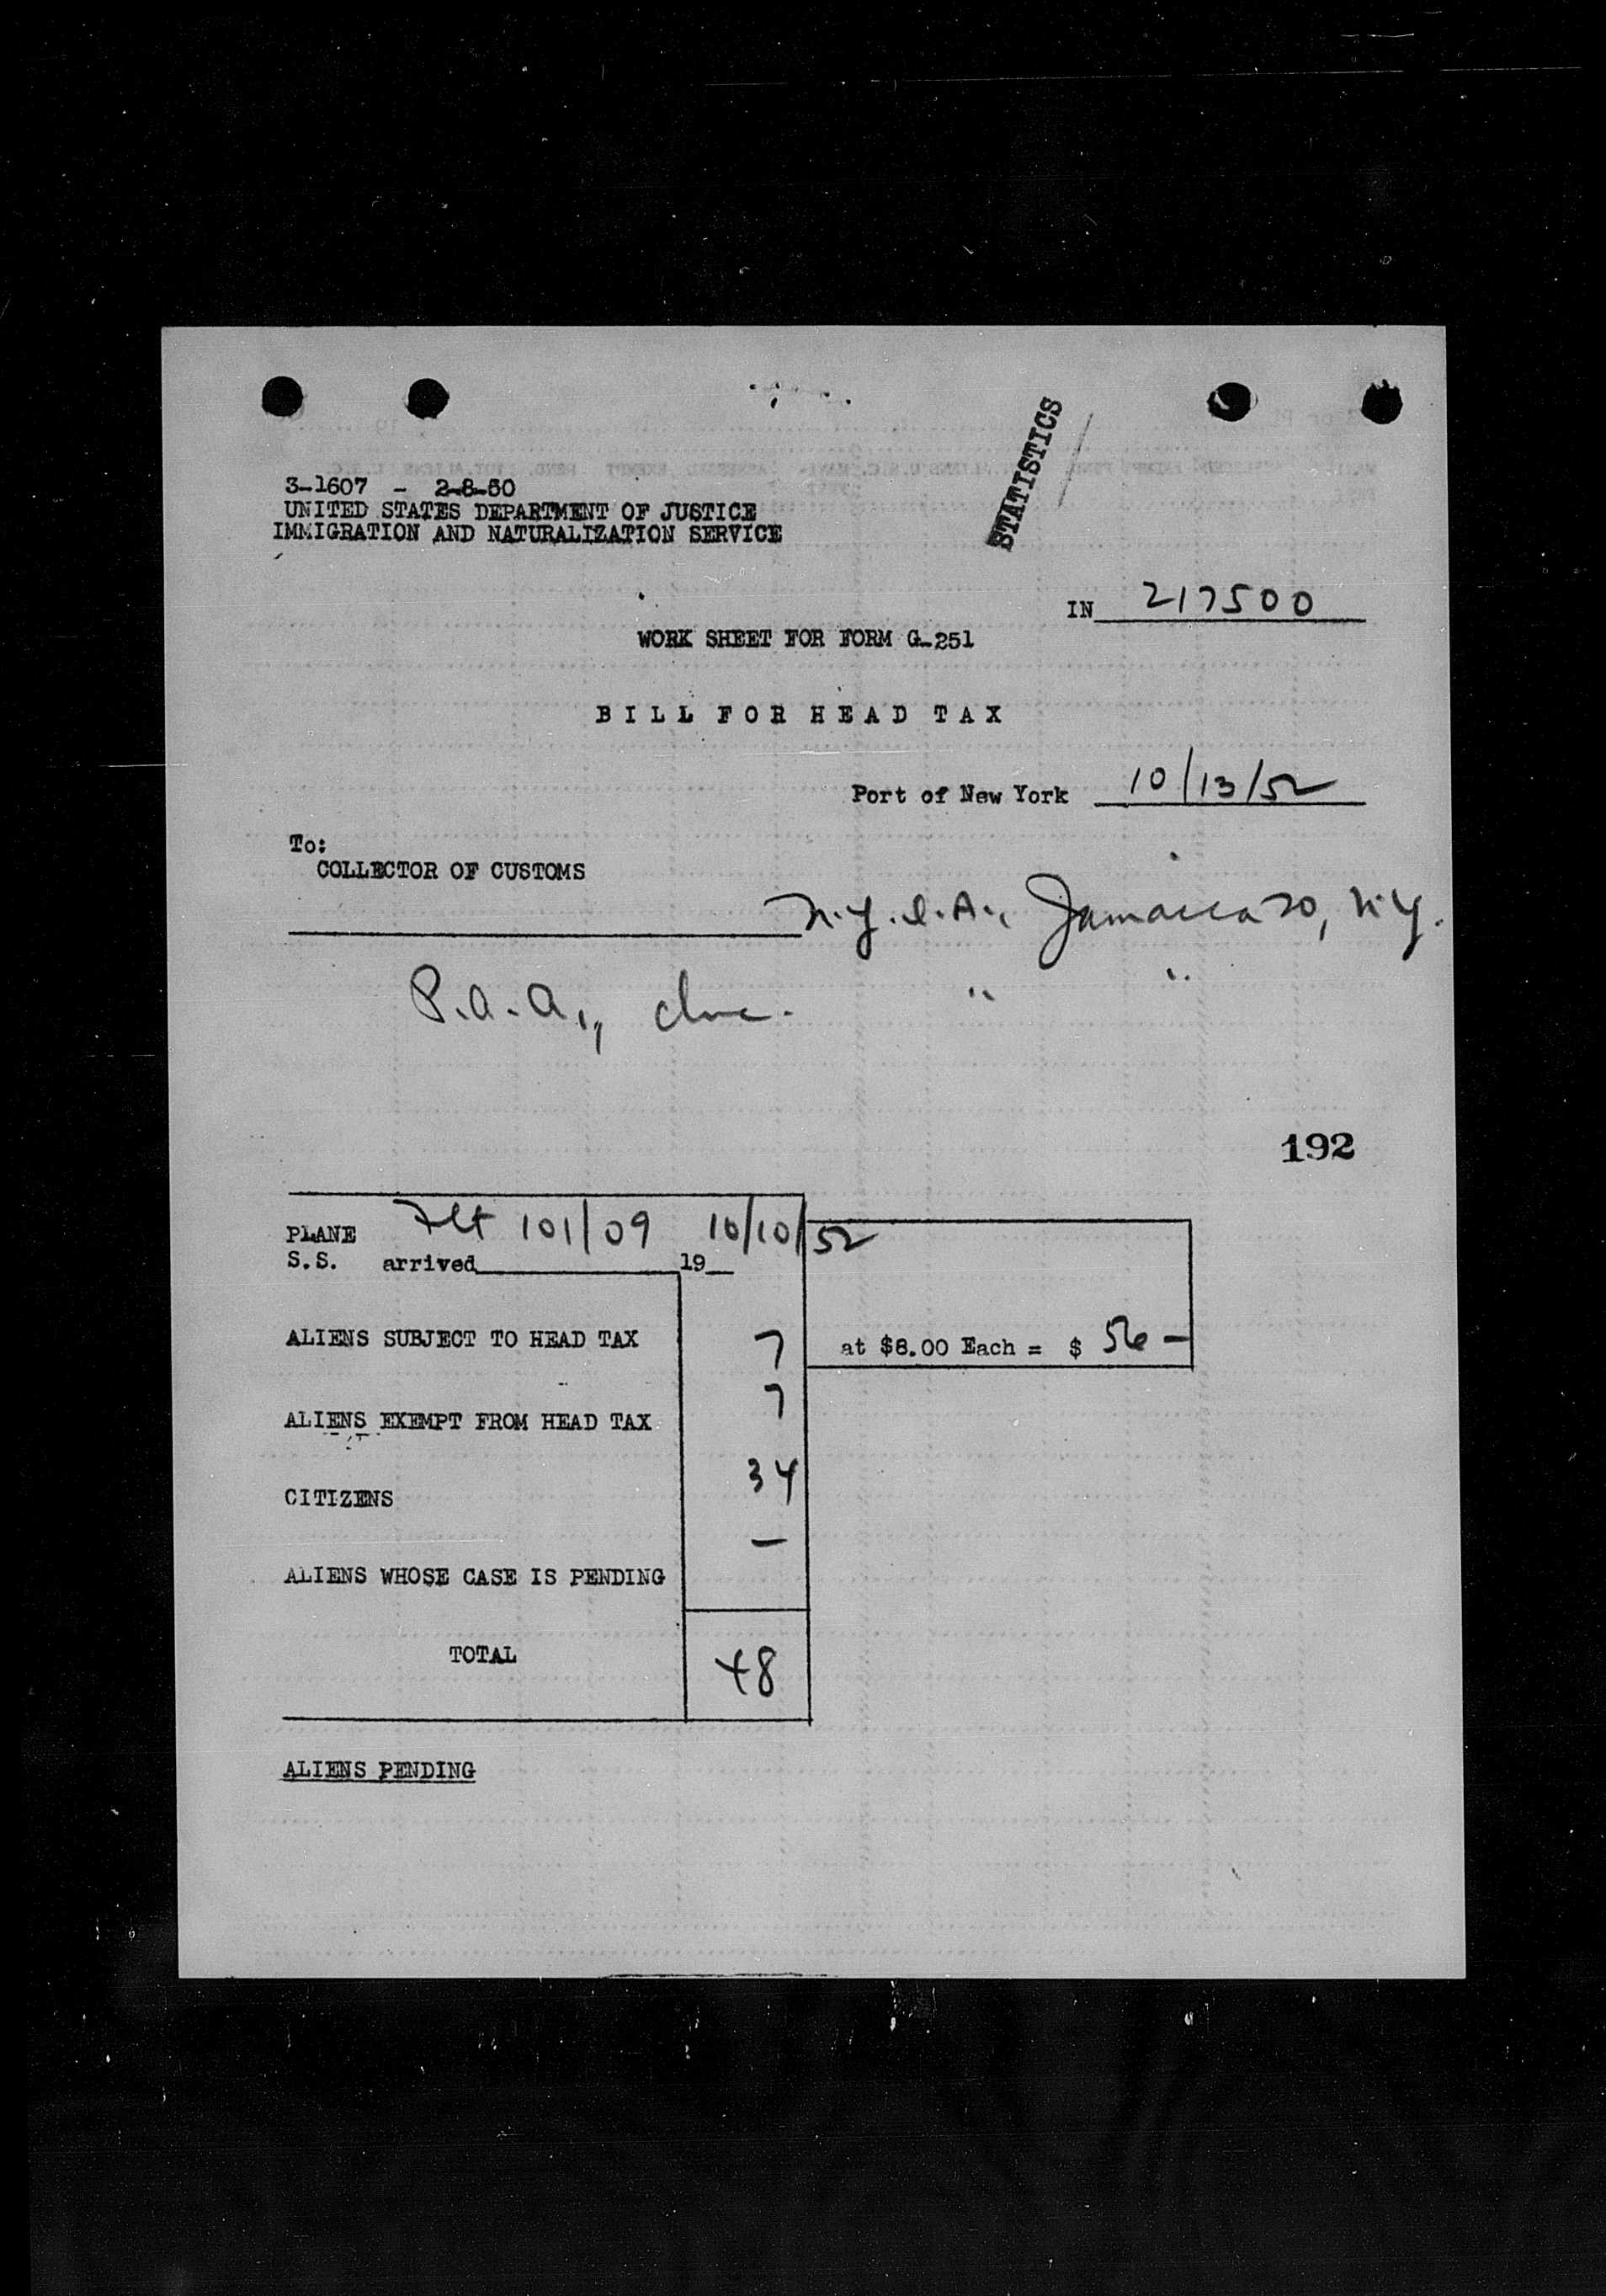 STATISTICS
3-1607 - 2-8-50
UNITED STATES DEPARTMENT OF JUSTICE
IMMIGRATION AND NATURALIZATION SERVICE
IN 217500
WORK SHEET FOR FORM G-251
BILL FOR HEAD TAX
Port of New York 10/13/52
To:
COLLECTOR OF CUSTOMS
N.Y.I.A., Jamaica 30, N.Y.
P.A.A., Inc. " "
192
PLANE Flt 101/09 10/10/52
S.S. arrived 19
ALIENS SUBJECT TO HEAD TAX 7 at $8.00 Each = $ 56 -
ALIENS EXEMPT FROM HEAD TAX 7
CITIZENS 34
ALIENS WHOSE CASE IS PENDING -
TOTAL 48
ALIENS PENDING